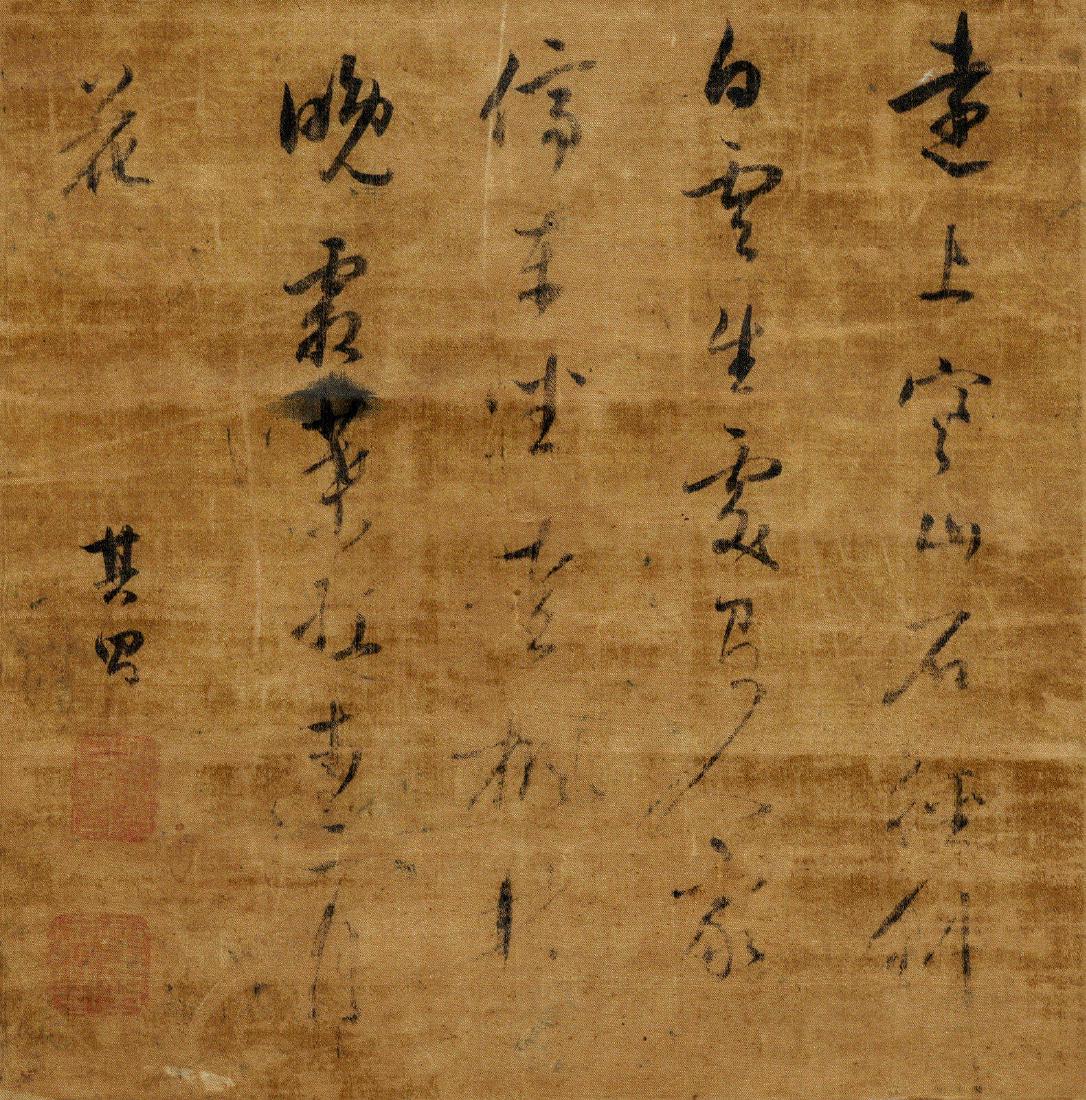 遠上寒山石徑斜
白雲生處有人家
停車坐愛楓林
晚霜葉紅於二月
花
其昌